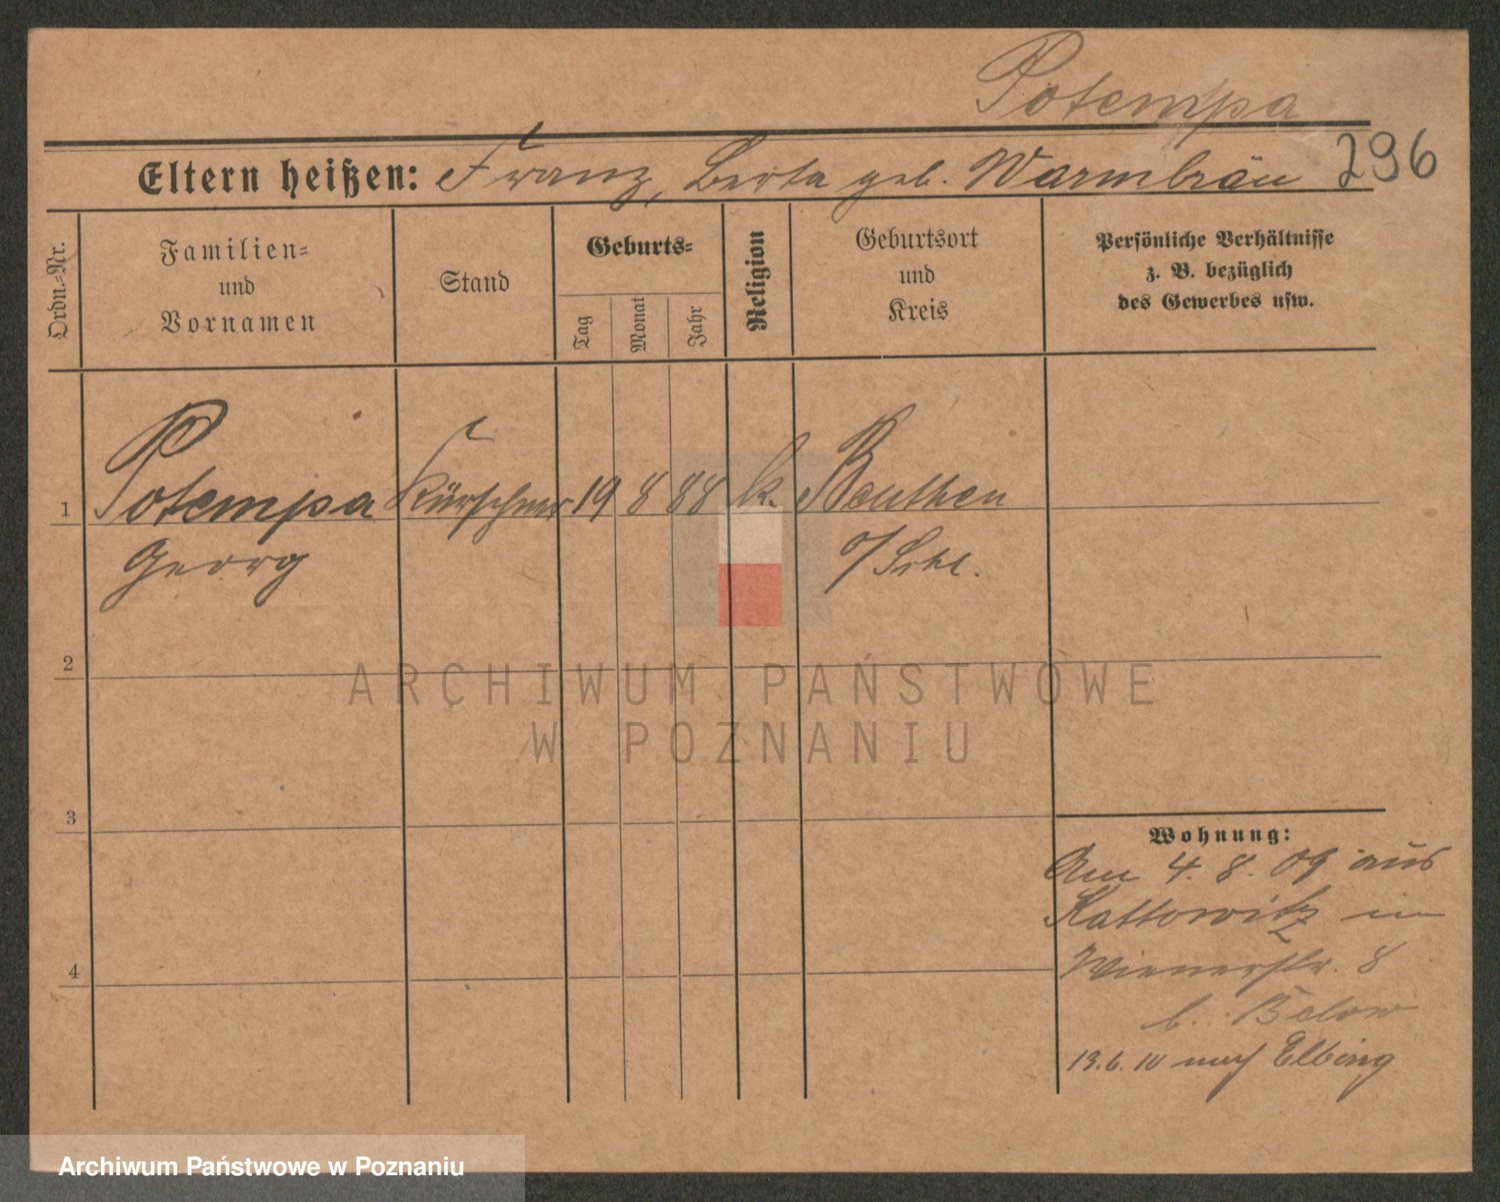 Potempa
Eltern heißen: Franz, Berta geb. Warmbräu 296
Ordn.-Nr.
Familien-
und
Vornamen
Stand
Geburts-
Tag
Monat
Jahr
Religion
Geburtsort
und
Kreis
Persönliche Verhältnisse
z. B. bezüglich
des Gewerbes usw.
1 Potempa Kürschner 19 8 88 k. Beuthen
Georg o/Schl.
2
3
4
Wohnung:
Am 4. 8. 09 aus
Kattowitz in
Wienerstr. 8
b. Below
13.6.10 nach Elbing
ARCHIWUM PAŃSTWOWE
W POZNANIU
Archiwum Państwowe w Poznaniu